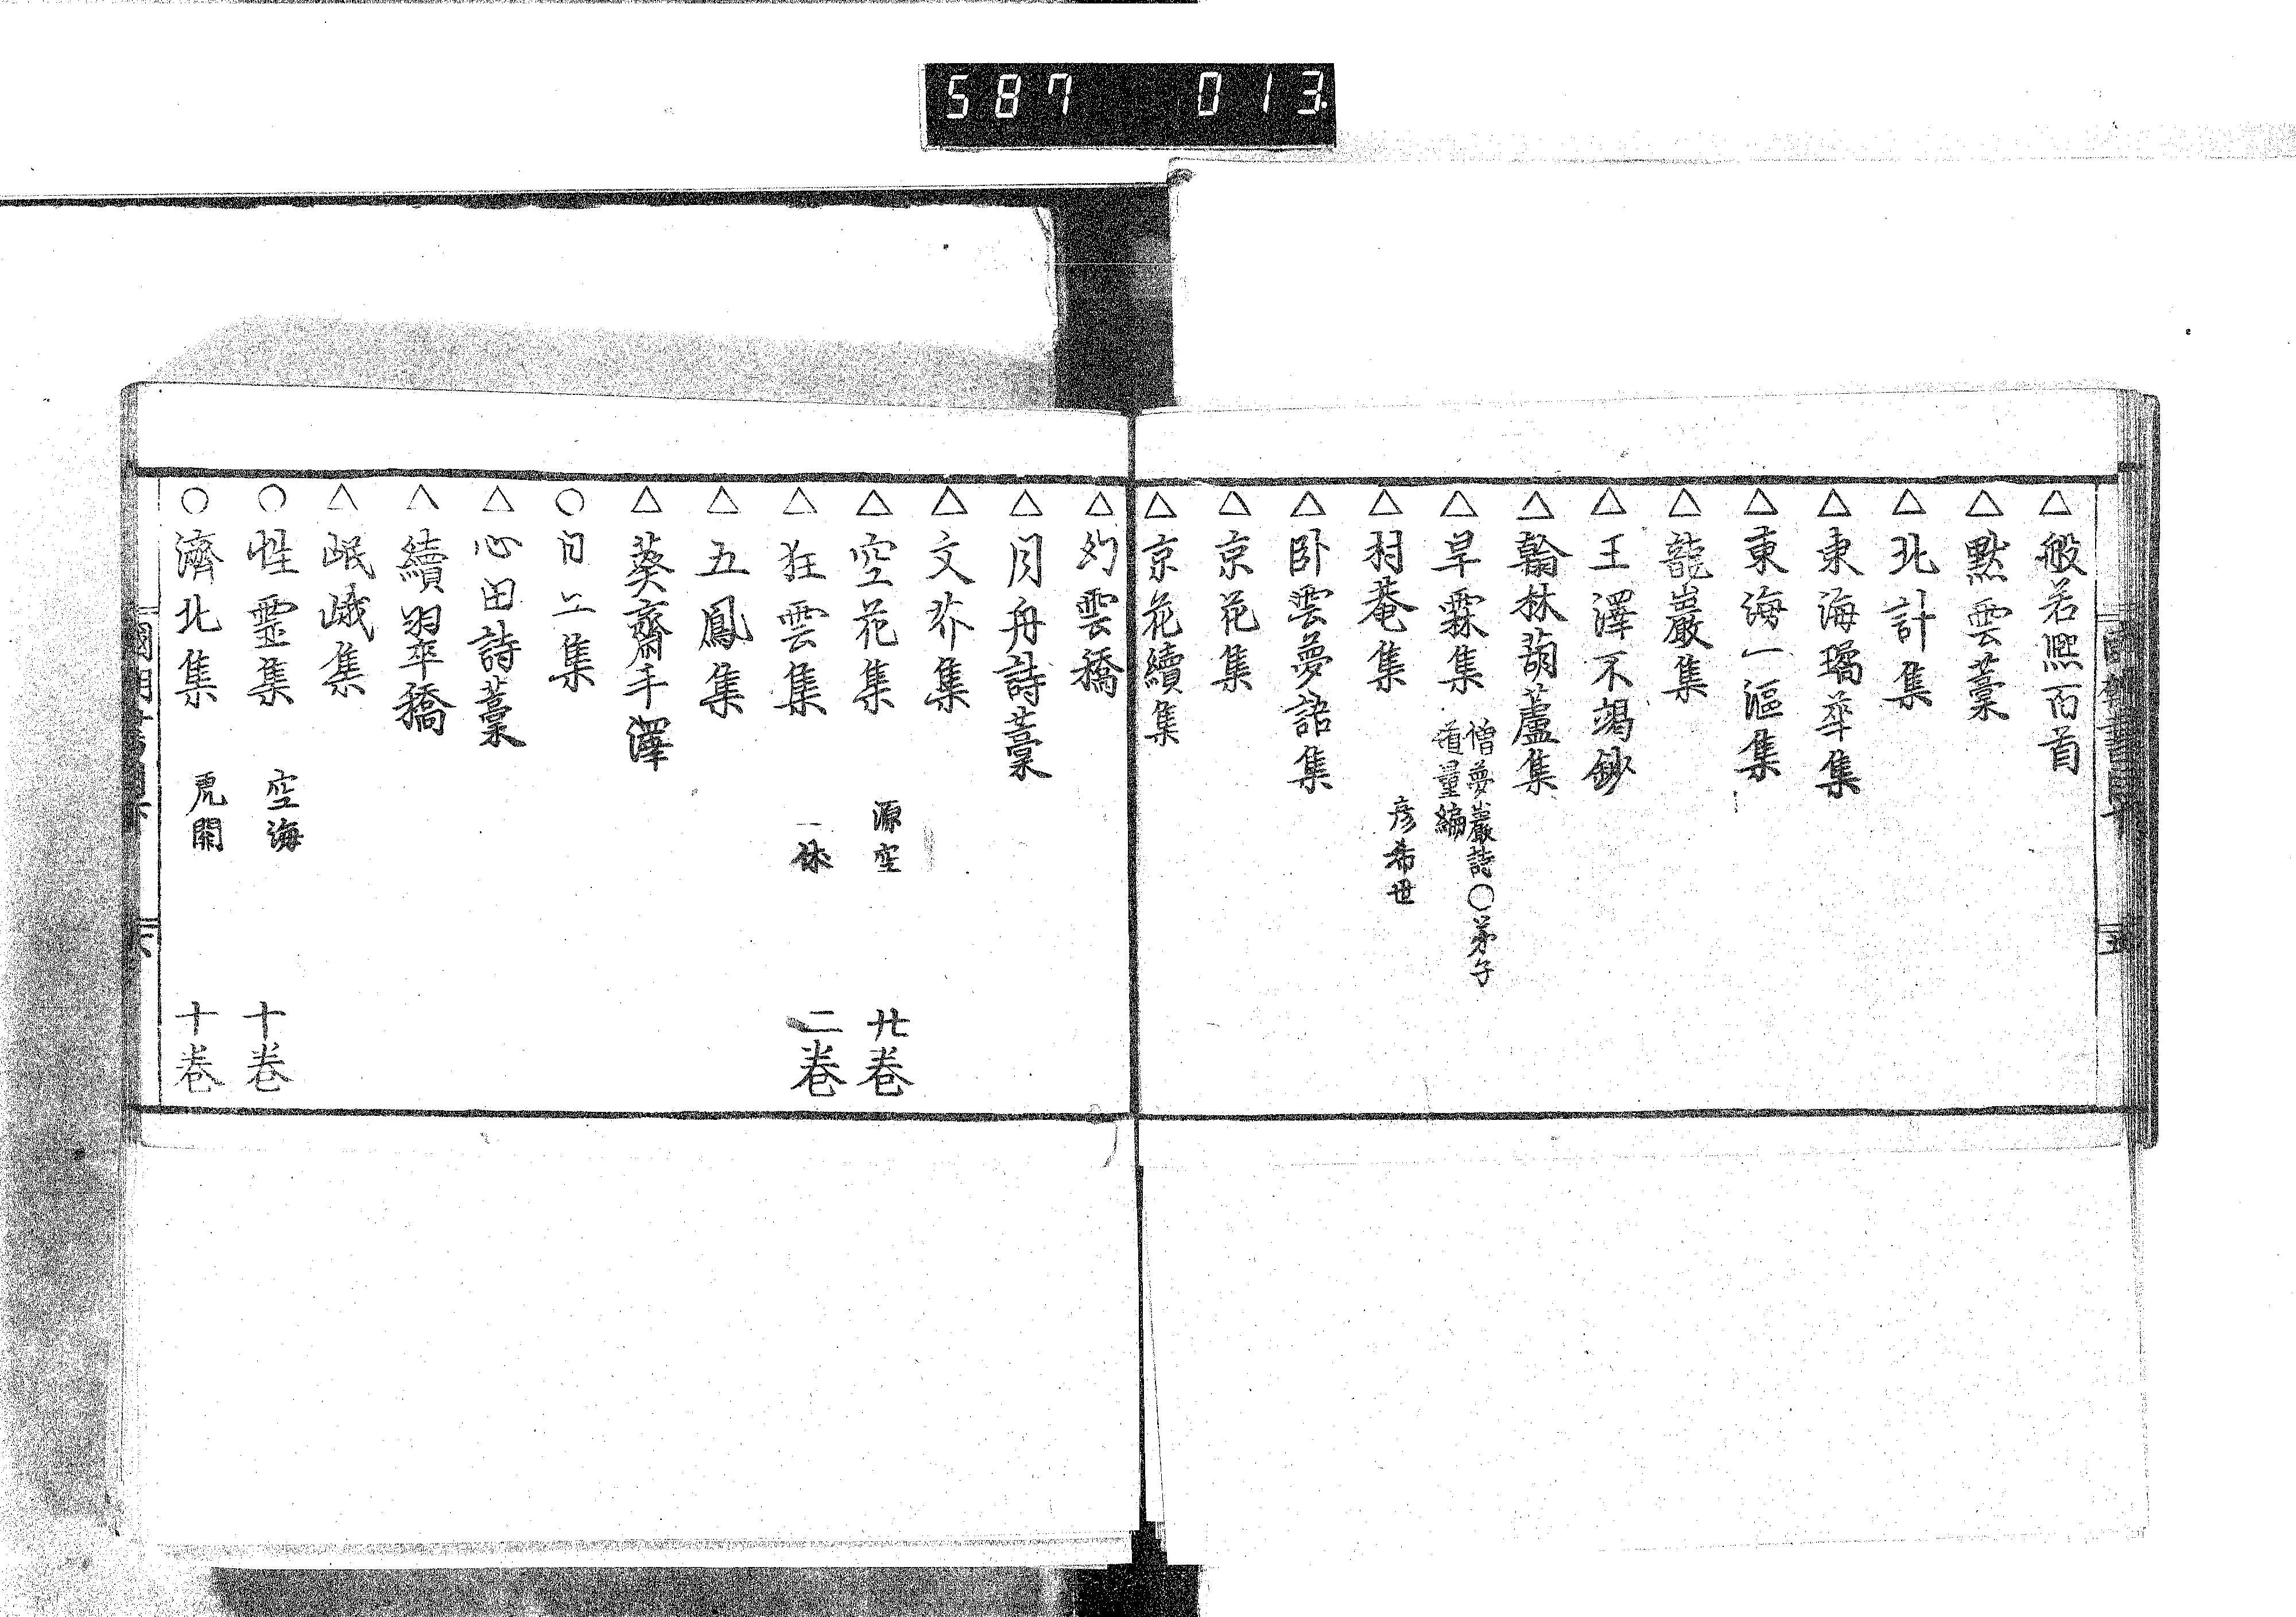 587 013
△般若煕百首
△默雲藁
△北計集
△東海璚華集
△東海一漚集
△龍巖集
△王澤不渇鈔
△翰林葫蘆集
△旱霖集 僧夢巖詩○弟子
道量編
△村菴集 彦希世
△卧雲夢語集
△京花集
△京花續集
△釣雲橋
△月舟詩藁
△文芥集
△空花集 源空 廿卷
△狂雲集 一休 二卷
△五鳳集
△葵齋手澤
○日工集
△心田詩藁
△續翠稿
△岷峨集
○性靈集 空海 十卷
○濟北集 虎関 十卷
五
六